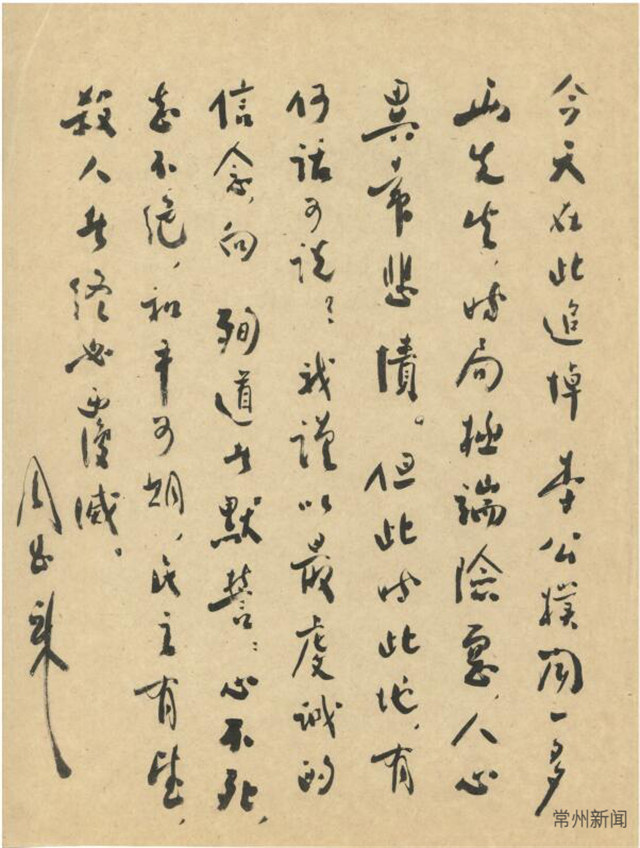 今天在此追悼李公樸聞一多
兩先生，時局極端險惡，人心
異常悲憤。但此時此地，有
何話可說？我謹以最虔誠的
信念，向殉道者默誓：心不死，
志不絕，和平可期，民主有望，
殺人者終必覆滅。
周恩來
常州新闻